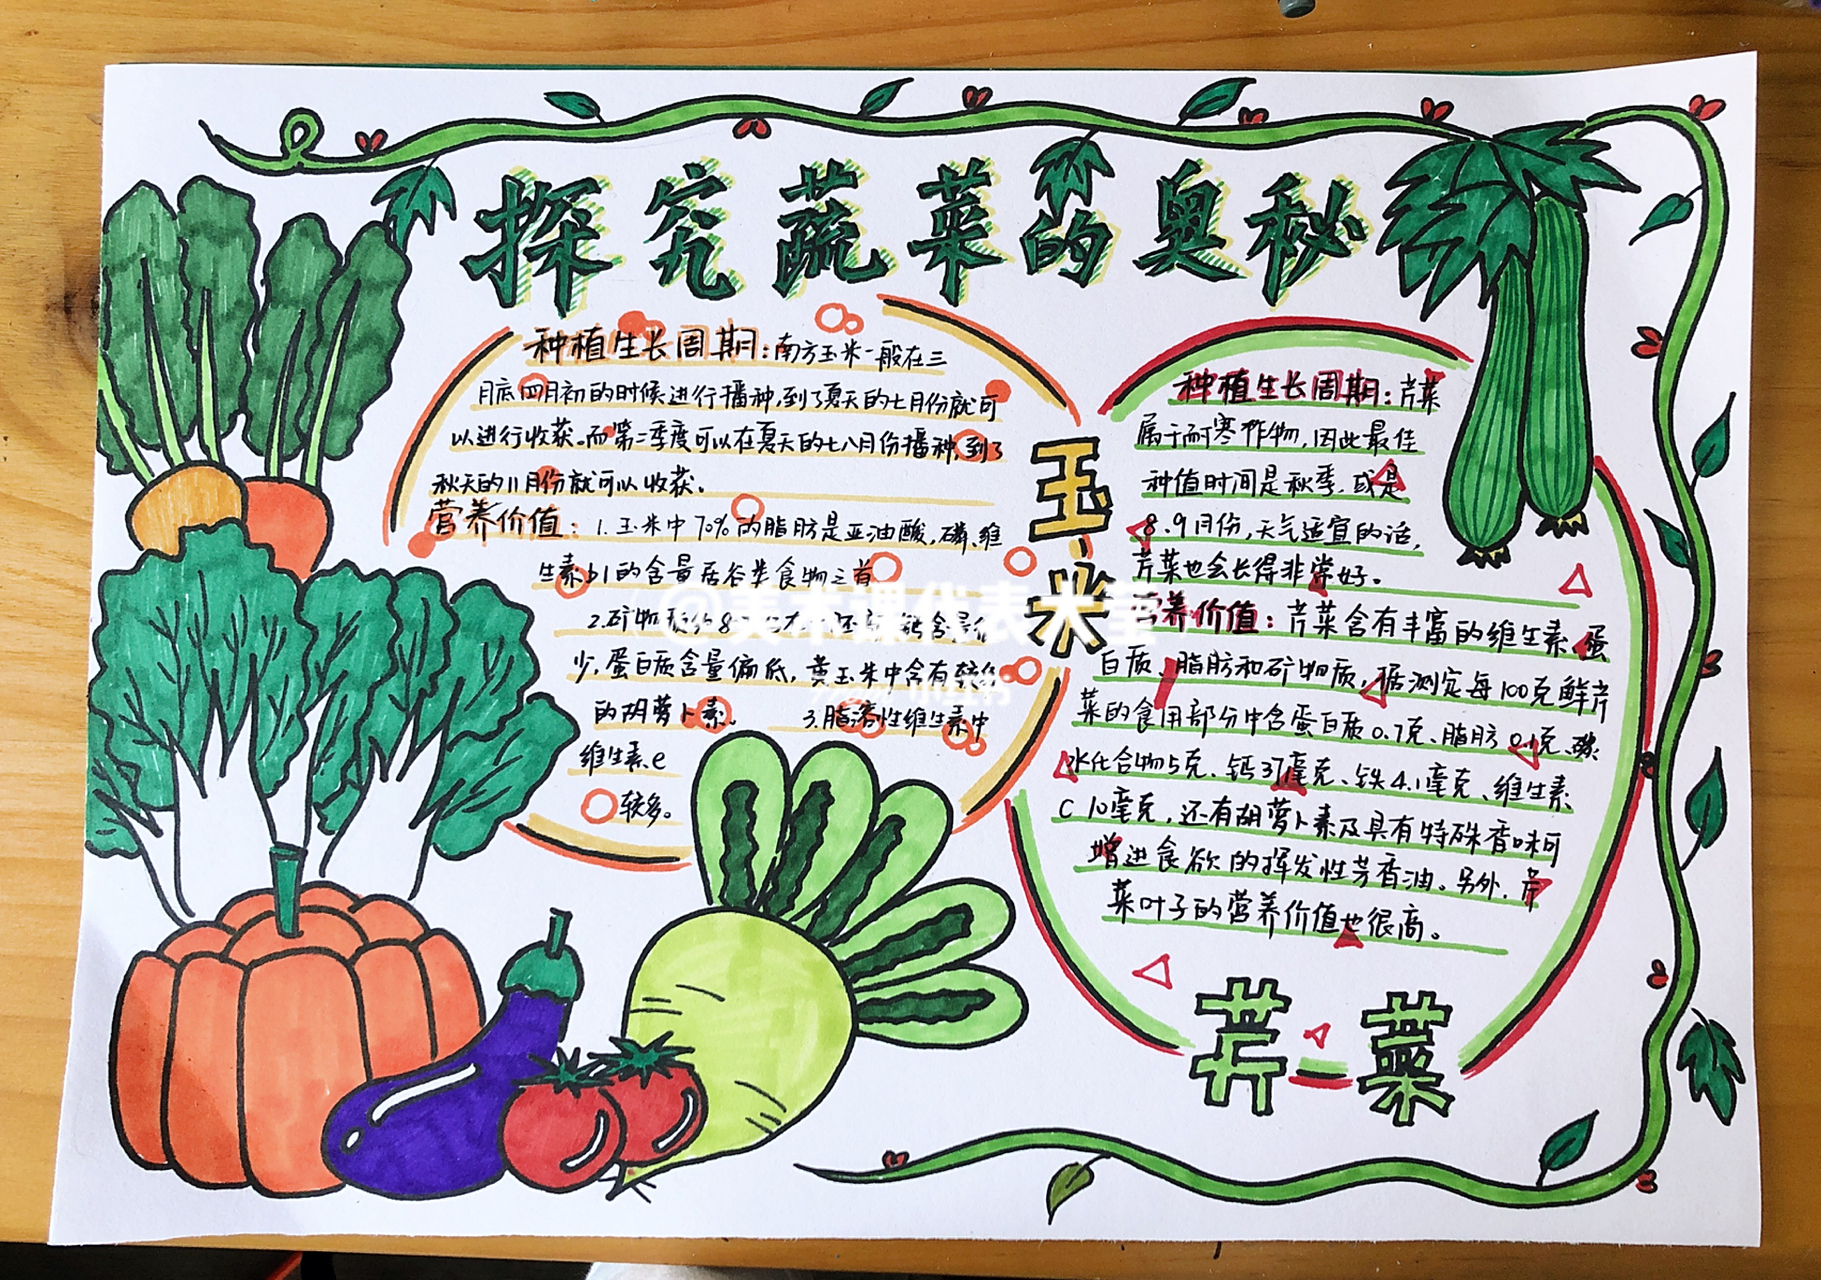 探究蔬菜的奥秘
种植生长周期：南方玉米一般在三
月底四月初的时候进行播种，到了夏天的七月份就可
以进行收获。而第二季度可以在夏天的七八月份播种，到了
秋天的11月份就可以收获。
营养价值：1.玉米中70%的脂肪是亚油酸，磷、维
生素b1的含量居谷类食物之首
2.矿物质
少，蛋白质含量偏低，黄玉米中含有较多
的胡萝卜素。 3.脂溶性维生素中
维生素e
较多。
玉米
种植生长周期：芹菜
属于耐寒作物，因此最佳
种值时间是秋季，或是
8、9月份，天气适宜的话，
芹菜也会长得非常好。
养价值：芹菜含有丰富的维生素、蛋
白质、脂肪和矿物质，据测定每100克鲜芹
菜的食用部分中含蛋白质0.7克、脂肪0.1克、碳
水化合物5克、钙37毫克、铁4.1毫克、维生素
C 10毫克，还有胡萝卜素及具有特殊香味可
增进食欲的挥发性芳香油。另外，芹
菜叶子的营养价值也很高。
芹菜
@美术课代表大
小红书